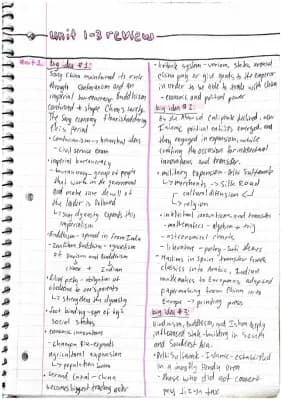 unit 1-3 review
unit 1
big idea #1:
Song China maintained its rule
through Confucianism and an
imperial bureaucracy. Buddhism
continued to shape China's society.
The Song economy flourished during
this period
- Confucianism - traditional ideas
↳ civil service exam
- imperial bureaucracy
- bureaucracy - group of people
that work in the government
and make sure the will of
the leader is followed
↳ Song dynasty expands this
imperialism
- Buddhism - spread in from India
- Zen/Chan Buddhism - syncretism
of Daoism and Buddhism
China + Indian
- filial piety - obligation of
obedience to one's parents
↳ strengthens the dynasty
- foot binding - sign of
social status
- economic innovations
- champa rice - expands
agricultural expansion
↳ population boom
- Grand Canal - China
becomes biggest trading
- tribute system - various states around
China pay or give goods to the emperor
in order to be able to trade with China
- economic and political power
big idea #2:
As the Abbasid Caliphate declined, new
Islamic political entities emerged, and
they engaged in expansion, while
creating the occasion for intellectual
innovations and transfer.
- military expansion - Delhi Sultanate
↳ merchants → Silk Road
cultural diffusion
↳ religion
- intellectual innovations and transfers
- mathematics - algebra + trig
- astronomical charts
- literature - poetry -
- Muslims in Spain transfer Greek
classics into Arabic, Indian
mathematics to Europeans, adapted
papermaking from China into
Europe → printing press
big idea #3:
Hinduism, Buddhism, and Islam deeply
influenced state-building in South
and Southeast Asia.
- Delhi Sultanate - Islamic - established
in a mostly Hindu area
- those who did not convert
pay jizya tax